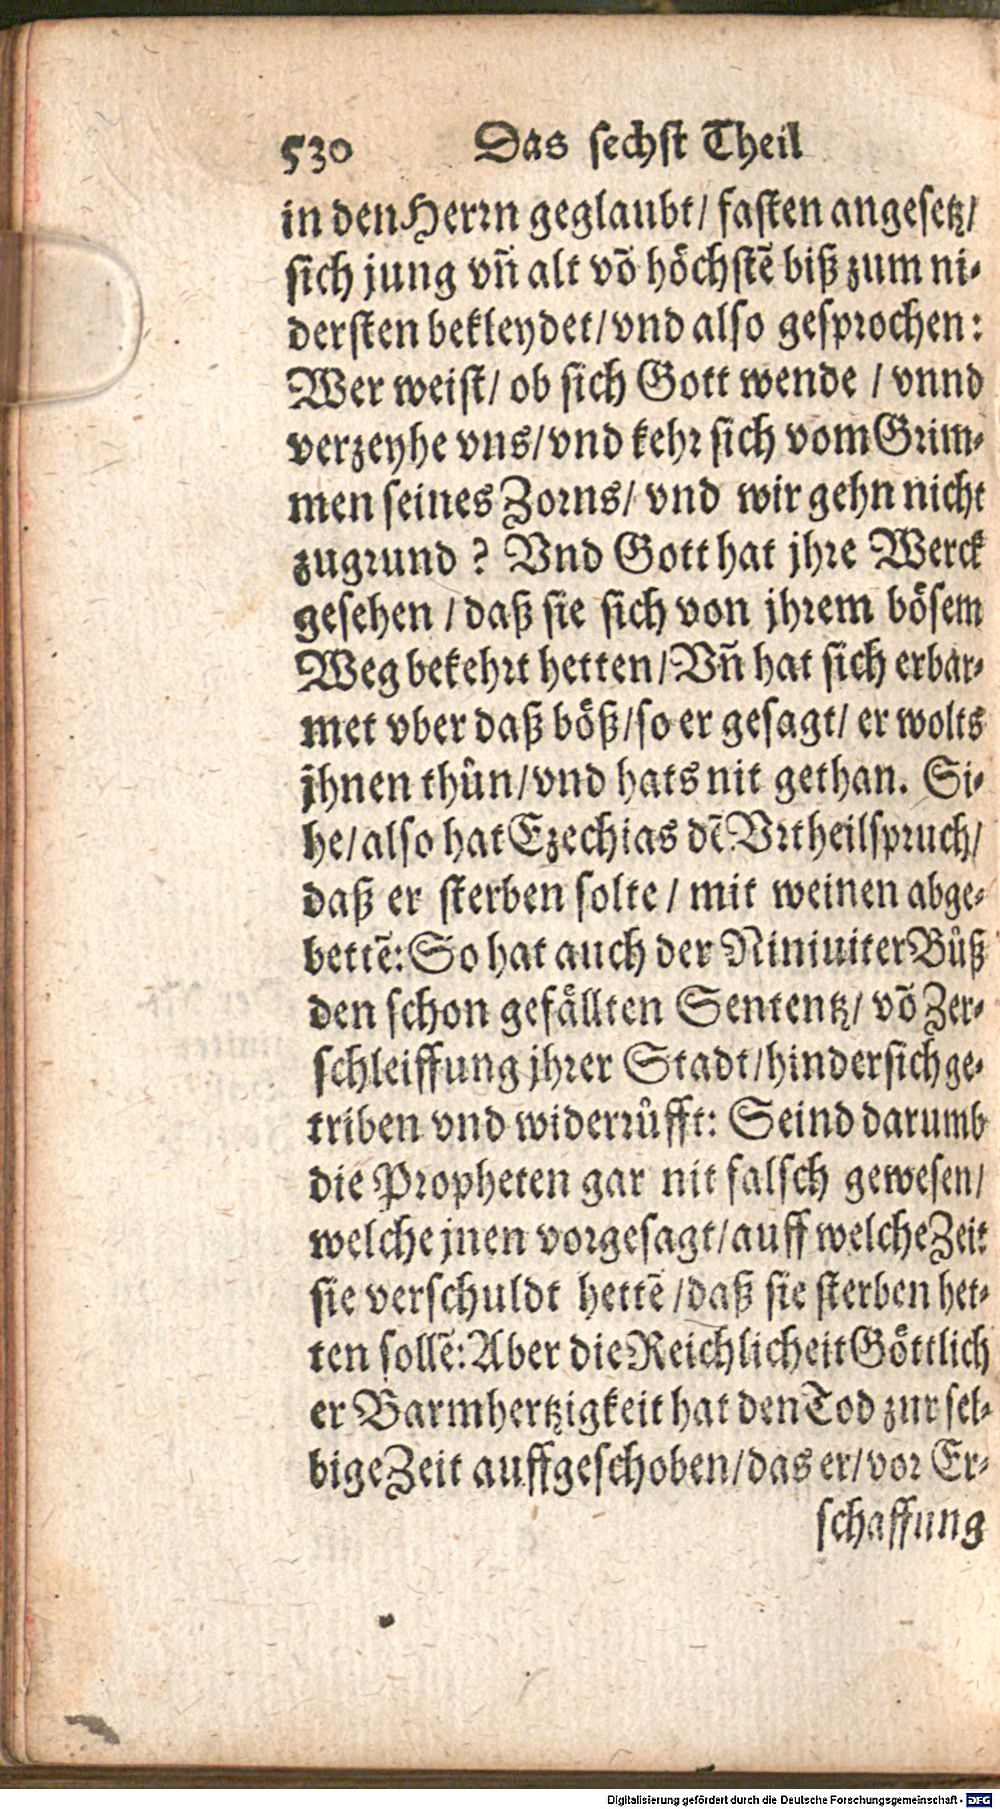 530 Das sechst Theil
in den Herrn geglaubt/ fasten angesetz/
sich jung vñ alt võ höchstẽ biß zum ni-
dersten bekleydet/vnd also gesprochen:
Wer weist/ ob sich Gott wende / vnnd
verzeyhe vns/vnd kehr sich vom Grim-
men seines Zorns/ vnd wir gehn nicht
zugrund ? Vnd Gott hat jhre Werck
gesehen / daß sie sich von jhrem bösem
Weg bekehrt hetten/Vñ hat sich erbar-
met vber daß böß/so er gesagt/ er wolts
jhnen thůn/vnd hats nit gethan. Si-
he/also hat Ezechias dẽ Vrtheilspruch/
daß er sterben solte / mit weinen abge-
bettẽ: So hat auch der Niniuiter Bůß
den schon gefällten Sententz/ võ Zer-
schleiffung jhrer Stadt/hindersich ge-
triben vnd widerrůfft: Seind darumb
die Propheten gar nit falsch gewesen/
welche jnen vorgesagt/auff welche Zeit
sie verschuldt hettẽ /daß sie sterben het-
ten sollẽ: Aber die Reichlicheit Göttlich
er Barmhertzigkeit hat den Tod zur sel-
bige Zeit auffgeschoben/das er/vor Er-
schaffung
Digitalisierung gefördert durch die Deutsche Forschungsgemeinschaft - DFG